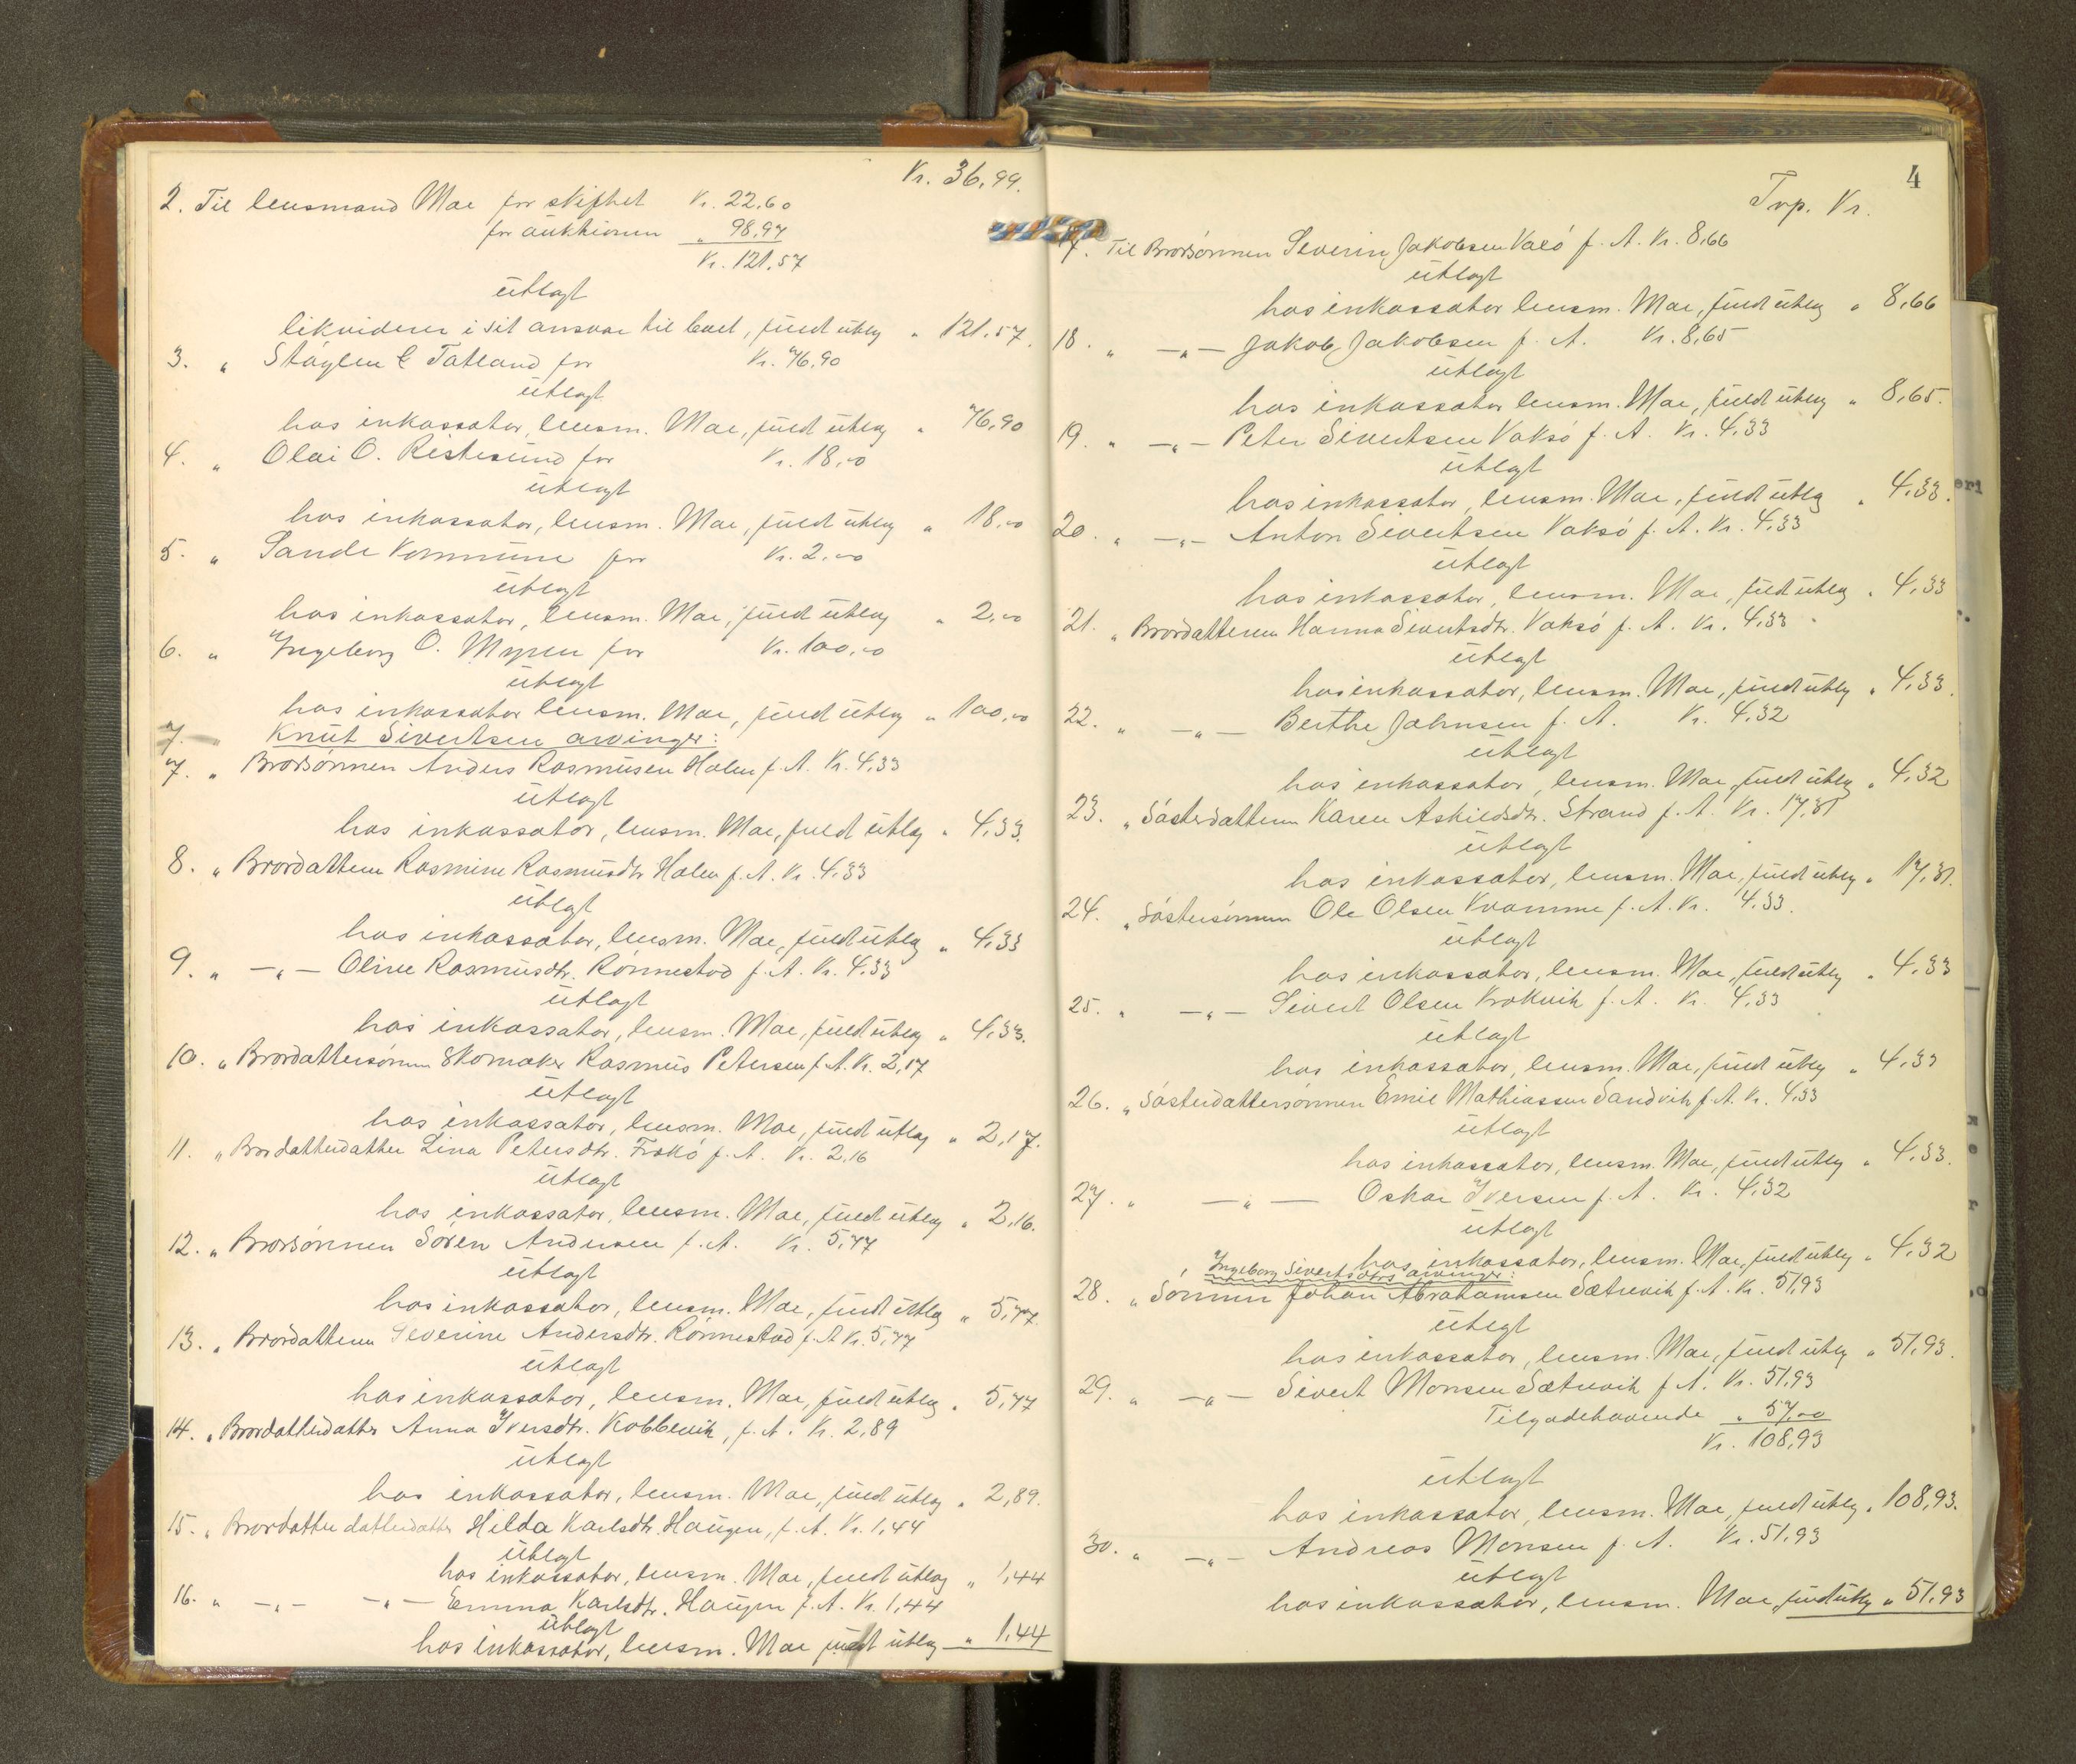 Kr. 36,99.
2. Til lensmand Mae for skiftet Kr. 22,60
for auktionen " 98,97
Kr. 121,57
utlagt
likviderer i sit ansvar til boet, fuld utlæg " 121.57.
3. " Støylen & Tatland for Kr. 76,90
utlagt
hos inkassator, lensm. Mae, fuld utlæg " 76,90
4. " Olai O. Ristesund for Kr. 18,00
utlagt
hos inkassator, lensm. Mae, fuld utlæg " 18,00
5. " Sande Kommune for Kr. 2,00
utlagt
hos inkassator, lensm. Mae, fuld utlæg " 2,00
6. " Ingeborg O. Myren for Kr. 100,00
utlagt
hos inkassator lensm. Mae, fuld utlæg " 100,00
7. Knut Sivertsen arvinger:
7. " Brorsønnen Anders Rasmusen Halen f. A. Kr. 4.33
utlagt
hos inkassator, lensm. Mae, fuld utlæg " 4,33.
8. " Brordatteren Rasmine Rasmusdtr. Halen f. A. Kr. 4.33
utlagt
hos inkassator, lensm. Mae, fuld utlæg " 4,33
9. " —"— Oline Rasmusdtr. Rønnestad f. A. Kr. 4.33
utlagt
hos inkassator, lensm. Mae, fuld utlæg " 4,33.
10. " Brordattersønnen Skomaker Rasmus Petersen f. A. Kr. 2,17
utlagt
hos inkassator, lensm. Mae, fuld utlæg " 2,17.
11. " Brordatterdatter Lina Petersdtr. Frekø f. A. Kr. 2,16
utlagt
hos inkassator, lensm. Mae, fuld utlæg " 2,16.
12. " Brorsønnen Søren Andersen f. A. Kr. 5,77
utlagt
hos inkassator, lensm. Mae, fuld utlæg " 5,77.
13. " Brordatteren Severine Andersdtr. Rønnestad f. A Kr. 5,77
utlagt
hos inkassator, lensm. Mae, fuld utlæg " 5,77
14. " Brordatterdatter Anna Iversdtr. Kobbevik, f. A. Kr. 2,89
utlagt
hos inkassator, lensm. Mae, fuld utlæg " 2,89.
15. " Brordatterdatterdatter Hilda Karlsdtr. Haugen, f. A. Kr. 1,44
utlagt
hos inkassator, lensm. Mae, fuld utlæg " 1,44
16. " —"— —"— Emma Karlsdtr. Haugen f. A. Kr. 1,44
utlagt
hos inkassator, lensm. Mae fuld utlæg " 1,44
4
Trp. Kr.
17. Til Brorsønnen Severin Jakobsen Valø f. A. Kr. 8,66
utlagt
hos inkassator lensm. Mae, fuld utlæg " 8,66
18. " —"— Jakob Jakobsen f. A. Kr. 8,65
utlagt
hos inkassator lensm. Mae, fuld utlæg " 8,65.
19. " —"— Peter Sivertsen Vaksø f. A. Kr. 4,33
utlagt
hos inkassator, lensm. Mae, fuld utlæg " 4,33.
20. " —"— Anton Sivertsen Vaksø f. A. Kr. 4,33
utlagt
hos inkassator, lensm. Mae, fuld utlæg " 4,33
21. " Brordatteren Hanna Sivertsdtr. Vaksø f. A. Kr. 4,33
utlagt
hos inkassator, lensm. Mae, fuld utlæg " 4,33.
22. " —"— Berthe Johnsen f. A. Kr. 4,32
utlagt
hos inkassator, lensm. Mae, fuld utlæg " 4,32
23. " Søsterdatteren Karen Askildsdtr. Strand f. A. Kr. 17,31
utlagt
hos inkassator, lensm. Mae, fuld utlæg " 17,31.
24. " Søstersønnen Ole Olsen Kvamme f. A. Kr. 4.33.
utlagt
hos inkassator, lensm. Mae, fuld utlæg " 4,33
25. " —"— Sivert Olsen Krokvik f. A. Kr. 4,33
utlagt
hos inkassator, lensm. Mae, fuld utlæg " 4,33
26. " Søsterdattersønnen Emil Mathiassen Sandvik f. A. Kr. 4,33
utlagt
hos inkassator, lensm. Mae, fuld utlæg " 4,33.
27. " —"— Oskar Iversen f. A. Kr. 4,32
utlagt
hos inkassator, lensm. Mae, fuld utlæg " 4,32
Ingeborg Sivertsdtrs arvinger:
28. " Sønnen Johan Abrahamsen Sætrevik f. A. Kr. 51,93
utlagt
hos inkassator, lensm. Mae, fuld utlæg " 51,93.
29. " —"— Sivert Monsen Sætrevik f. A. Kr. 51,93
Tilgodehavende " 57,00
Kr. 108,93
utlagt
hos inkassator, lensm. Mae, fuld utlæg " 108,93.
30. " —"— Andreas Monsen f. A. Kr. 51,93
utlagt
hos inkassator, lensm. Mae, fuld utlæg " 51,93